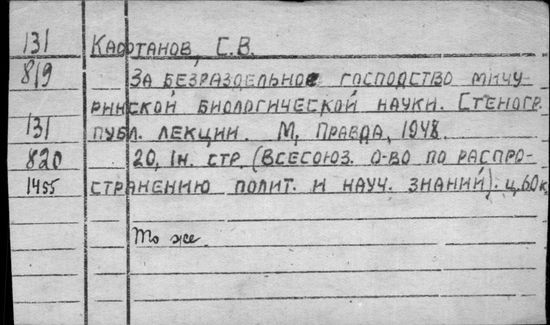 131 Кафтанов, С.В.
819 За безраздельное господство мичу-
ринской биологической науки. Стеногр.
131 публ. лекции. М, Правда, 1948.
820 20, 1н. стр. (Всесоюз. о-во по распро-
1455 странению полит. и науч. знаний). ц. 60 к.
То же